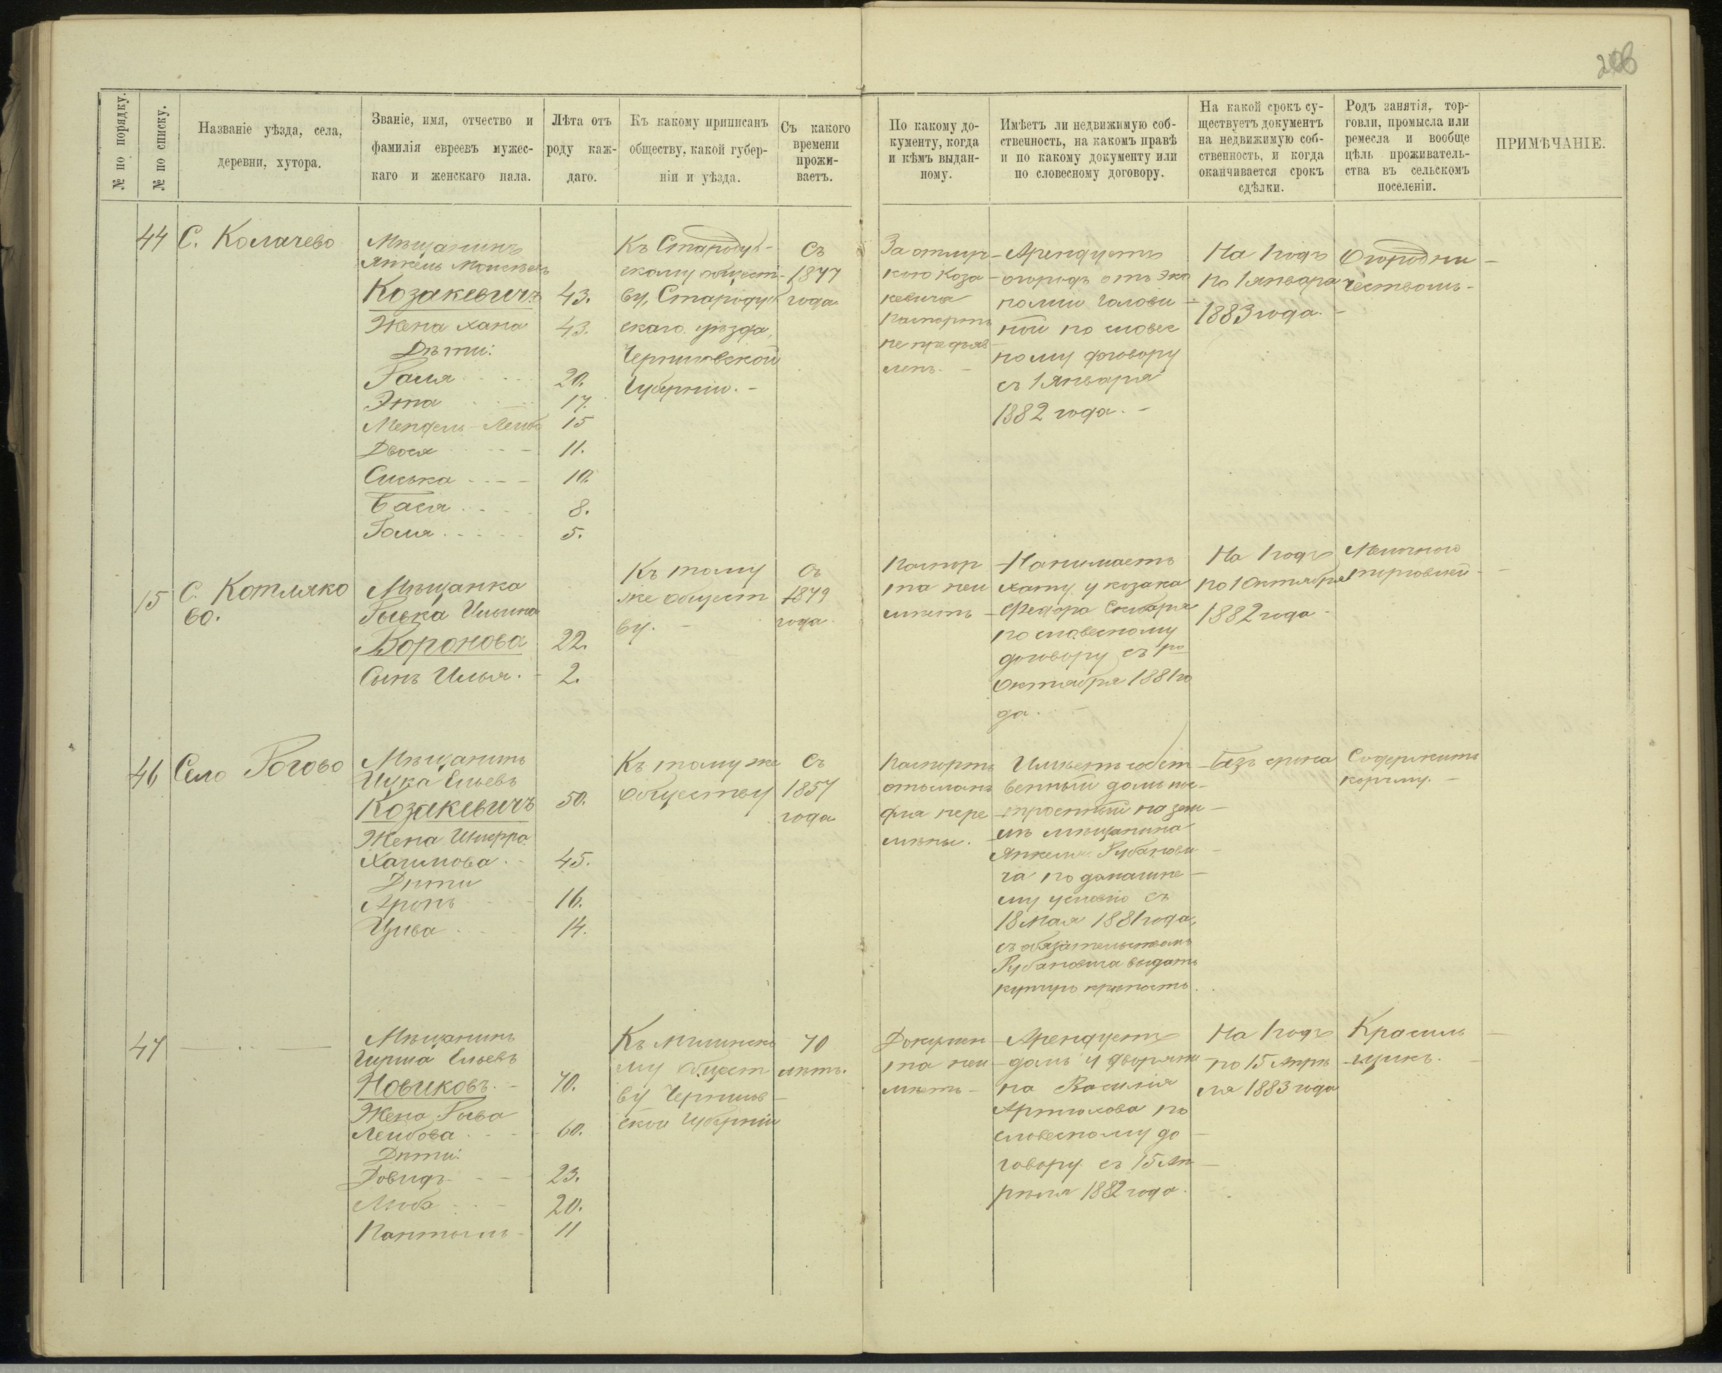 206
№ по порядку.
№ по списку.
Названіе уѣзда, села,
деревни, хутора.
Званіе, имя, отчество и
фамилія евреевъ мужес-
каго и женскаго пала.
Лѣта отъ
роду каж-
даго.
Къ какому приписанъ
обществу, какой губер-
ніи и уѣзда.
Съ какого
времени
прожи-
ваетъ.
По какому до-
кументу, когда
и кѣмъ выдан-
ному.
Имѣетъ ли недвижимую соб-
ственность, на какомъ правѣ
и по какому документу или
по словесному договору.
На какой срокъ су-
ществуетъ документъ
на недвижимую соб-
ственность, и когда
оканчивается срокъ
сдѣлки.
Родъ занятія, тор-
говли, промысла или
ремесла и вообще
цѣль проживатель-
ства въ сельскомъ
поселеніи.
ПРИМѢЧАНІЕ.
44
С. Колачево
Мѣщанинъ
Янкель
Козакевичъ
Жена Хана
Дѣти:
Галя
Эта
Мендель Лейба
Двося
Сиська
Бася
Голя
43.
43.
20.
17.
15
11.
10.
8.
5.
Къ Стародуб-
скому общест-
ву, Стародуб
скаго уѣзда,
Черниговской
Губерніи. -
Съ
1877
года
За отлуч-
кою Коза-
кевича
паспортъ
не предъяв-
ленъ. -
Арендуетъ
огородъ отъ эко
номіи Голови-
ной по словес
ному договору
съ 1 Января
1882 года. -
На 1 годъ
по 1 Января
1883 года. -
Огородни
чествомъ. -
15
С. Котляко
во.
Мѣщанка
Гиска Ильина
Воронова
Сынъ Илья. -
22.
2.
Къ тому
же общест
ву. -
Съ
1879
года.
Паспор
та неи
мѣетъ -
Нанимаетъ
хату у козака
Федора
по словесному
договору съ 1го
Октября 1881 го
да. -
На 1 годъ
по 1 Октября
1882 года
Мелочною
торговлей -
46
Село Рогово
Мѣщанинъ
Ицка Ельевъ
Козакевичъ
Жена
Хаимова
Дѣти
Аронъ
Цива
50.
45.
16.
14.
Къ тому же
обществу
Съ
1857
года
Паспортъ
отосланъ
для пере
мѣны. -
Имѣетъ собст
венный домъ по-
строенный на зем-
лѣ мѣщанина
Янкеля Рубанови
ча по домашне-
му условію съ
18 мая 1881 года,
съ обязательствомъ
Рубановича выдать
купчую крѣпость.
Безъ срока
Содержитъ
корчму. -
47
Мѣщанинъ
Гирша Ельевъ
Новиковъ. -
Жена Рива
Лейбова
Дѣти:
Довидъ
Люба
70.
60.
23.
20.
11
Къ Мглинско
му общест
ву Чернигов-
ской Губерніи
70
лѣтъ.
Докумен
та неи
мѣетъ -
Арендуетъ
домъ у дворяни
на Василія
Артюхова по
словесному до-
говору съ 15 Ап-
рѣля 1882 года.
На 1 годъ
по 15 Апрѣ
ля 1883 года
Красиль
щикъ. -